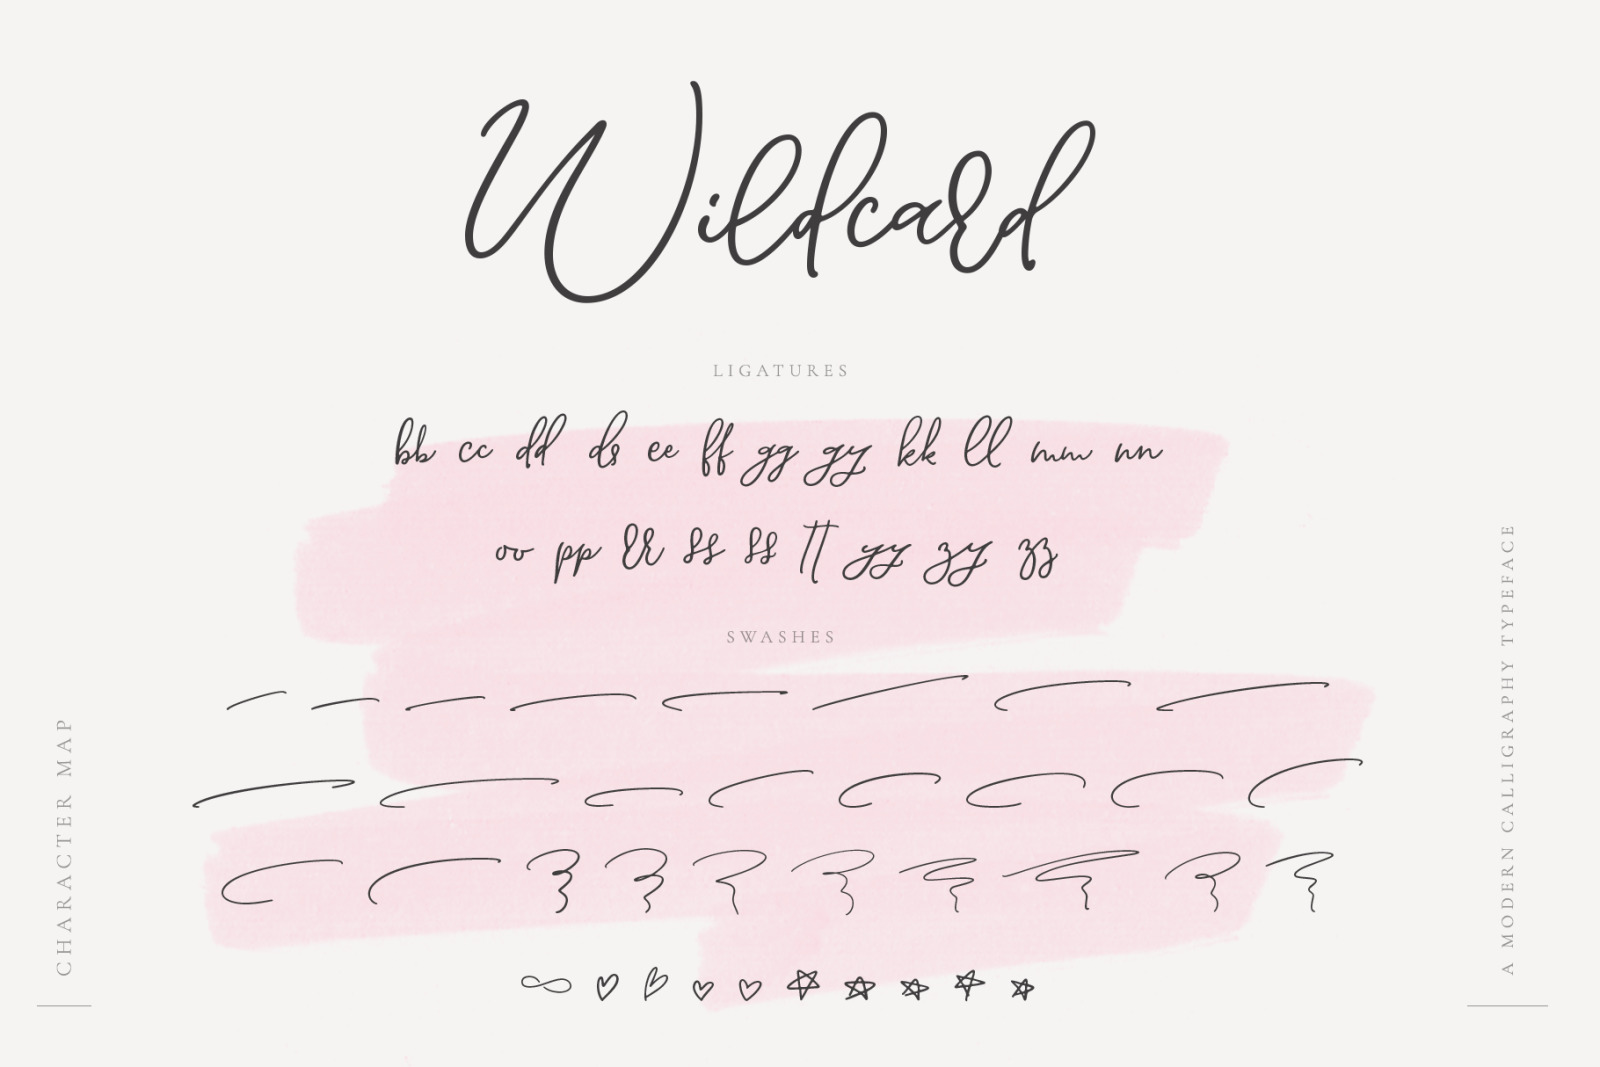 Wildcard
LIGATURES
bb cc dd ds ee ff gg gy kk ll mm nn
oo pp rr ss ss tt yy zy zz
SWASHES
CHARACTER MAP
A MODERN CALLIGRAPHY TYPEFACE